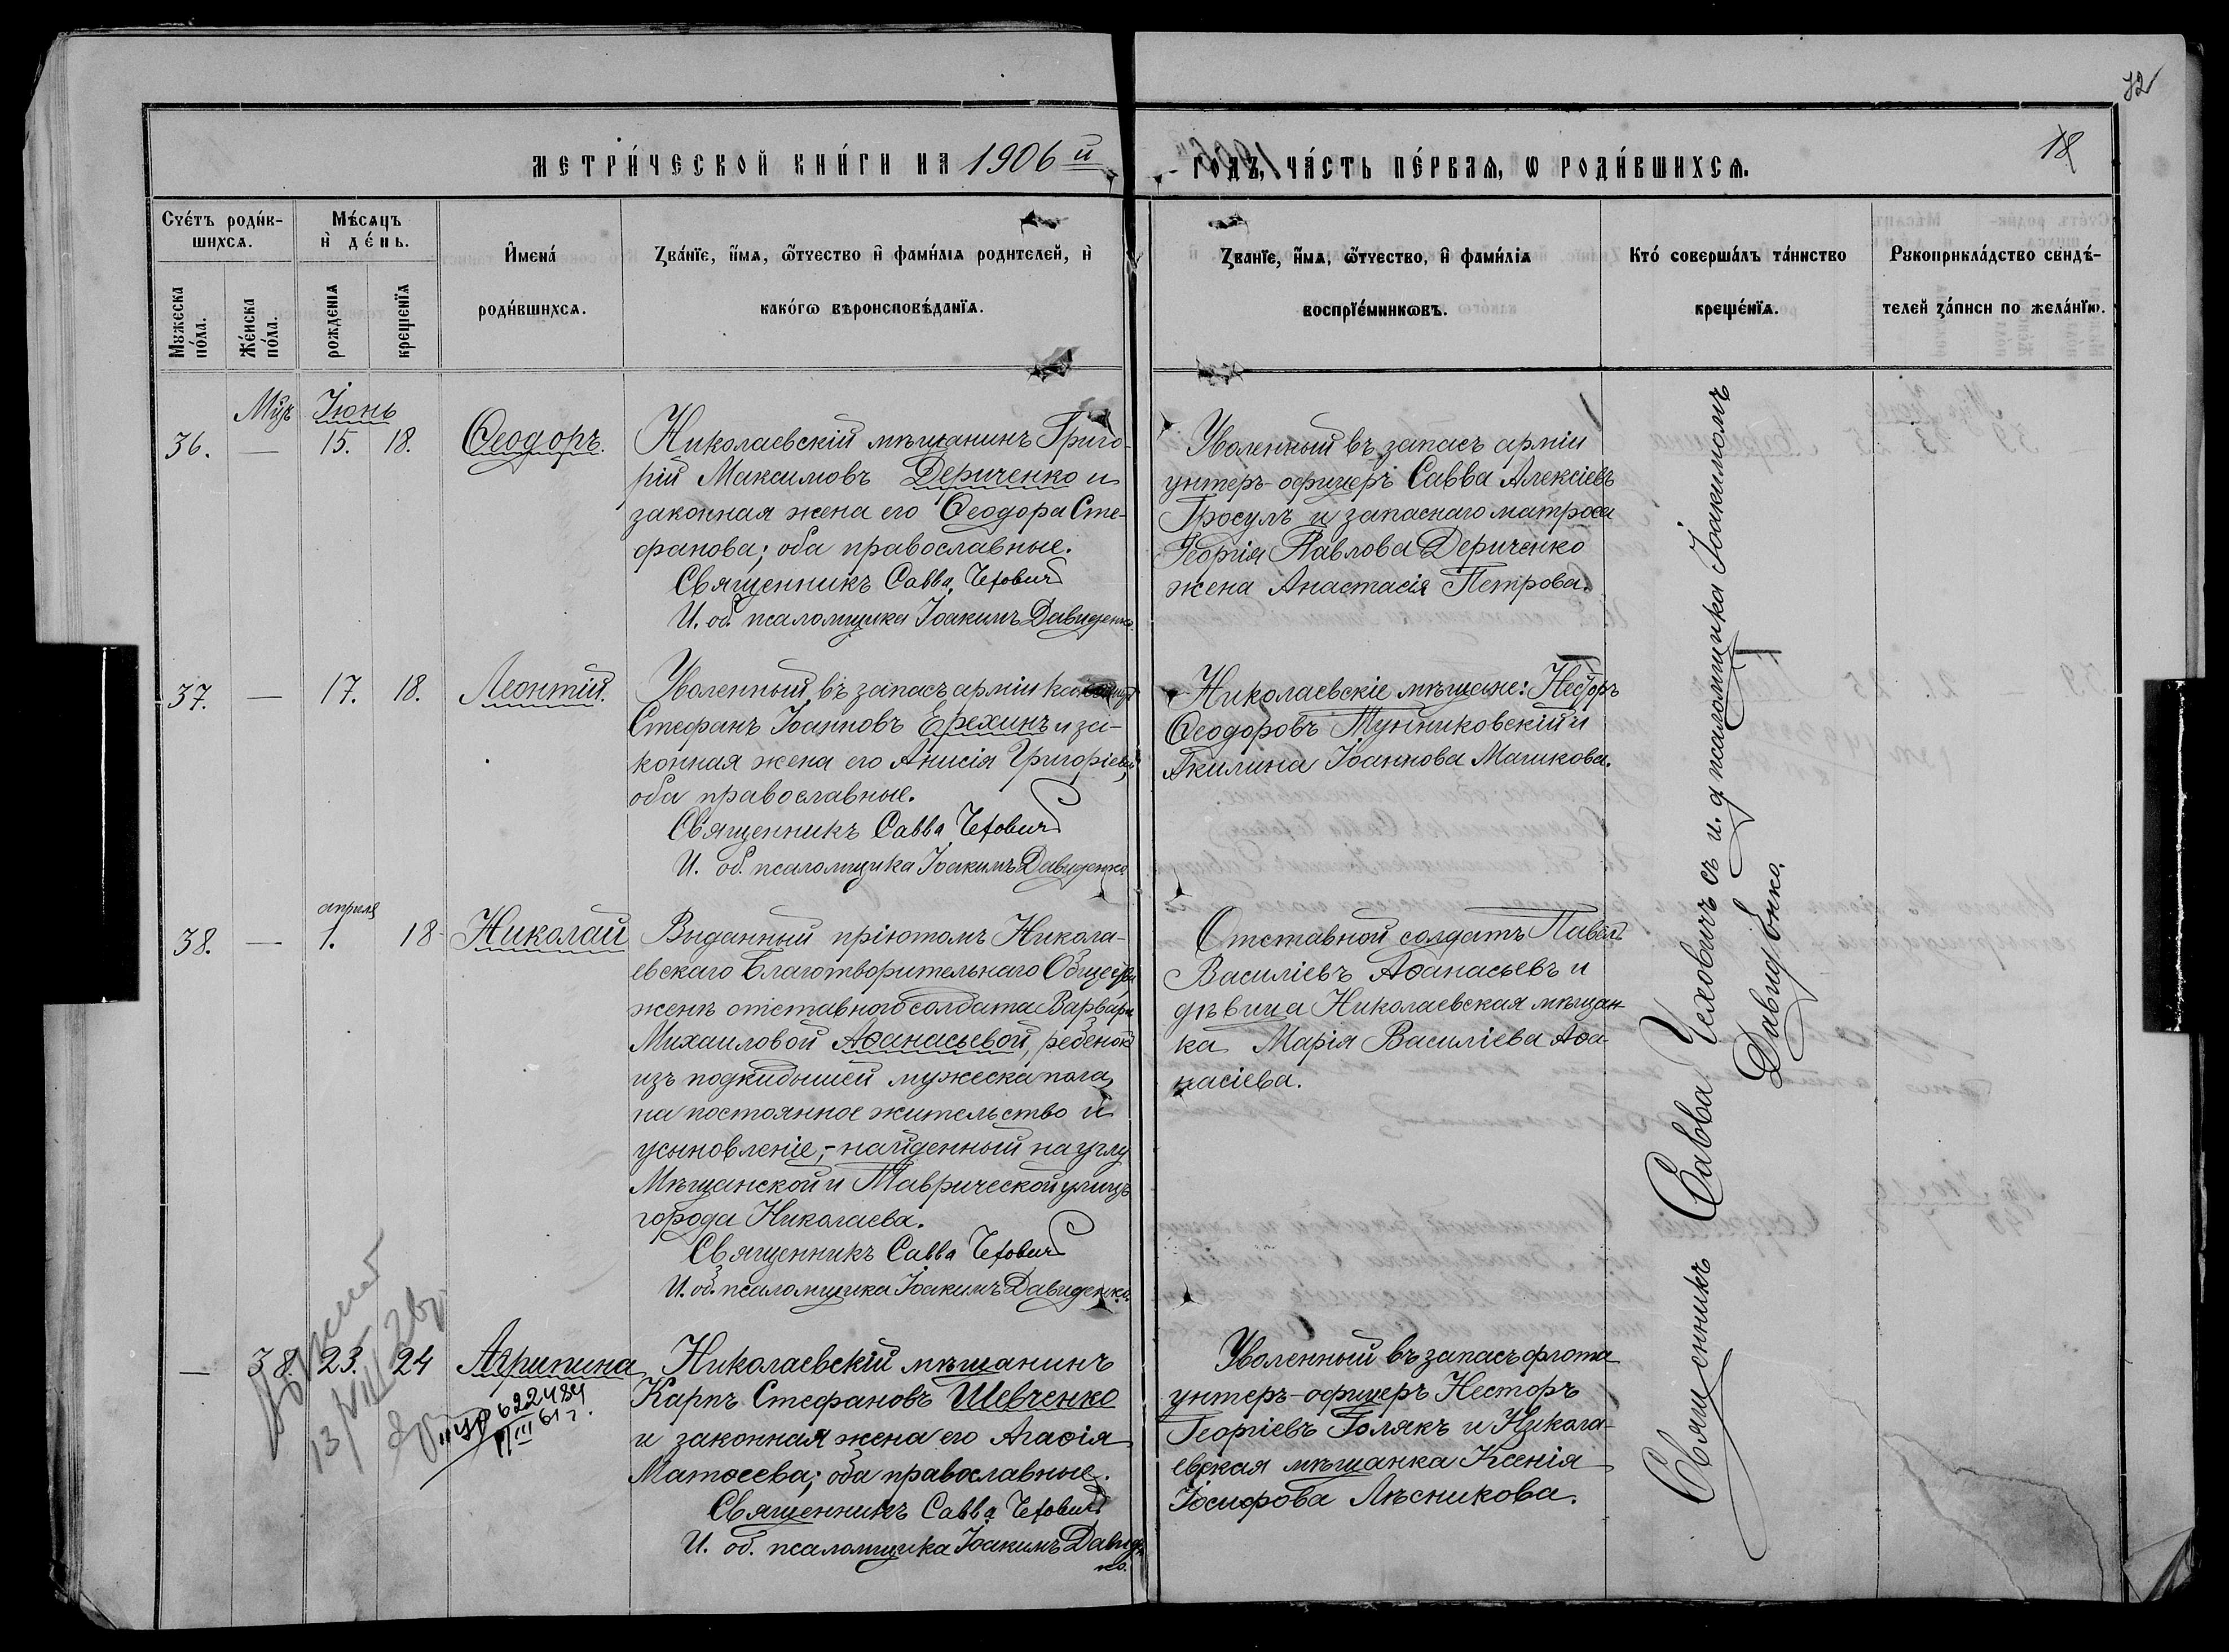 72
18
МЕТРИ́ЧЕСКОЙ КНИ́ГИ НА 1906 й
ГОДЪ, ЧА́СТЬ ПЕ́РВАѦ, Ѡ РОДИ́ВШИХСѦ.
Счéтъ роди́в-
шихсѧ.
Мѣ́сѧцъ
и҆ дéнь.
И҆мена́
роди́вшихсѧ.
Зва́нїе, и҆́мѧ, ѻ҆́тчество и҆ фами́лїѧ родителей, и҆
како́гѡ вѣроисповѣ́данїѧ.
Званїе, и҆́мѧ, ѻ҆́тчество, и҆ фами́лїѧ
воспрїе́мникѡвъ.
Кто́ соверша́лъ та́инство
креще́нїѧ.
Рꙋкоприкла́дство свидѣ́-
телей за́писи по жела́нїю.
Мꙋжеска
по́ла.
Же́нска
по́ла.
рожденїѧ
крещенїѧ
Мцъ Іюнь
36. — 15. 18. Ѳеодоръ.
Николаевскій мѣщанинъ Григо-
рій Максимовъ Дериченко и
законная жена его Ѳеодора Сте-
фанова; оба православные.
Священникъ Савва Чехович
И. об. псаломщика Іоакимъ Давиденко.
Уволенный въ запасъ арміи
унтеръ-офицеръ Савва Алексіевъ
Гросулъ и запаснаго матроса
Георгія Павлова Дериченко
жена Анастасія Петрова.
37. — 17. 18. Леонтій.
Уволенный въ запасъ арміи
Стефанъ Іоанновъ Ерехинъ и за-
конная жена его Анисія Григоріева,
оба православные.
Священникъ Савва Чехович
И. об. псаломщика Іоакимъ Давиденко
Николаевскіе мѣщане: Несторъ
Ѳеодоровъ и
Акилина Іоаннова Машкова.
апреля
38. — 1. 18 Николай
Выданный пріютомъ Никола-
евскаго Благотворительнаго Общества
женѣ отставного солдата Варвары
Михаиловой Аѳанасьевой, ребенокъ
изъ подкидышей мужеска пола,
на постоянное жительство и
усыновленіе,- найденный на углу
Мѣщанской и Таврической улицъ
города Николаева.
Священникъ Савва Чехович
И. об. псаломщика Іоакимъ Давиденко.
Отставной солдатъ Павелъ
Василіевъ Аѳанасьевъ и
дѣвица Николаевская мѣщан-
ка Марія Василіева Аѳа-
насіева.
— 38. 23. 24 Агрипина
13/VIII 26 г
622484
1/III 61 г.
Николаевскій мѣщанинъ
Карпъ Стефановъ Шевченко
и законная жена его Агаѳія
Матѳеева; оба православные.
Священникъ Савва Чехович
И. об. псаломщика Іоакимъ Давиден-
ко.
Уволенный въ запасъ флота
унтеръ-офицеръ Несторъ
Георгіевъ Голякъ и Никола-
евская мѣщанка Ксенія
Іосифова Лѣсникова.
Священникъ Савва Чеховичъ съ и. д. псаломщика Іоакимомъ
Давиденко.